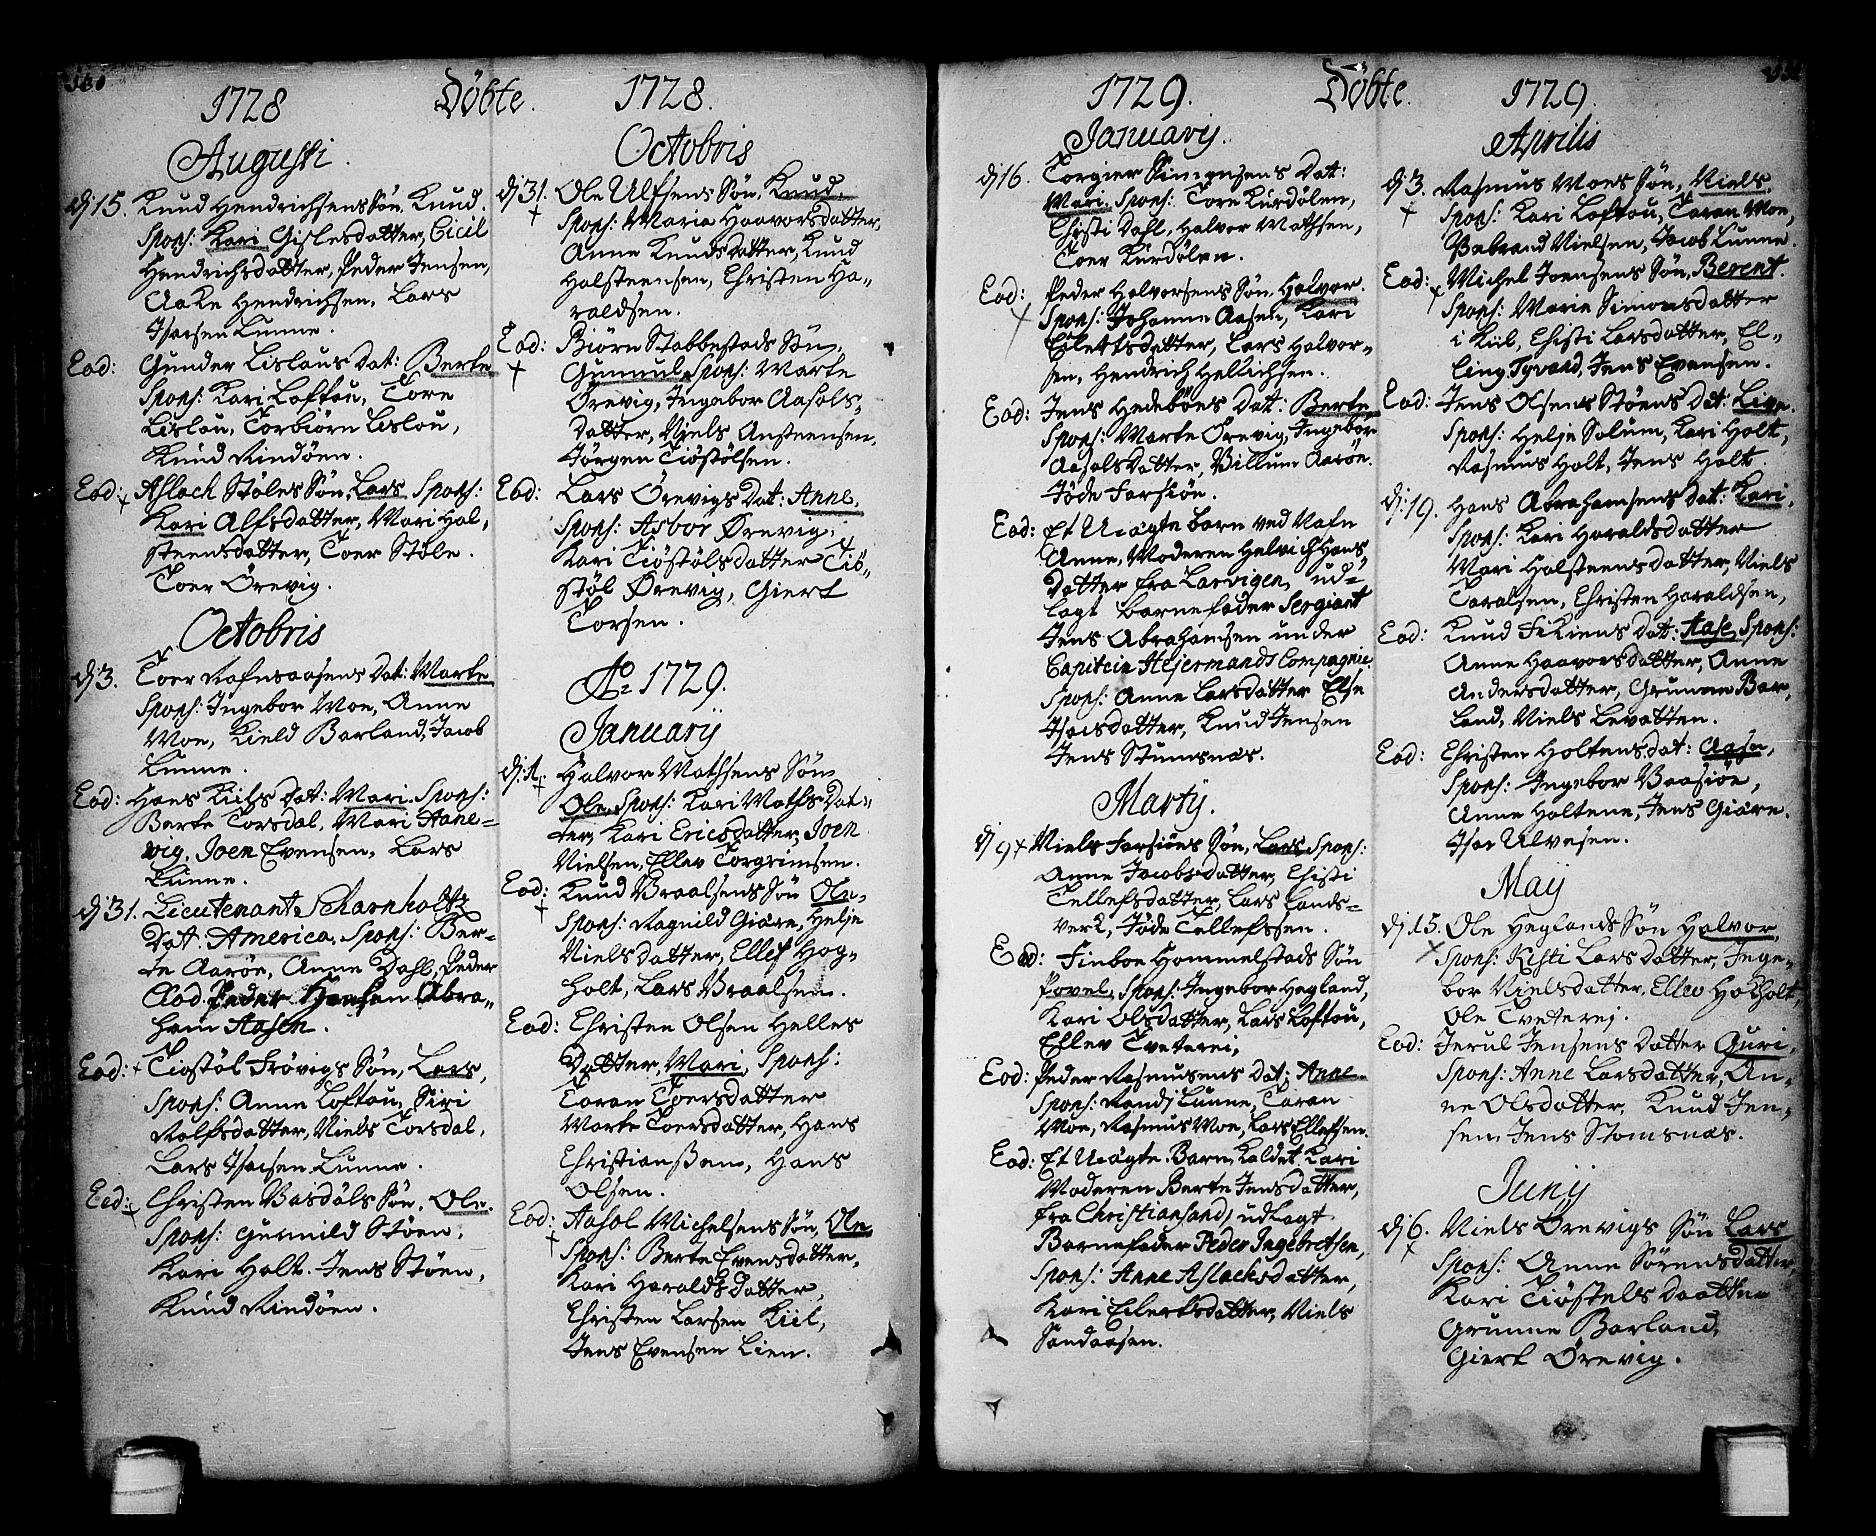 1728 Döbte.
Augusti.
dj 15. Knud Hendrichsens Søn, Knud.
Spons: Kari Gislesdatter, Cicil
Hendrichsdatter, Peder Jensen,
Aake Hendrichsen, Lars
Isacsen Lunne.
Eod: Gunder Lislaus Dat: Berte
Spons: Kari Loftou, Tore
Lislou, Torbiørn Lislou,
Knud Rindöen.
Eod: Aslach Støles Søn, Lars Spons:
Kari Alfsdatter, Mari Hal-
steensdatter, Toer Støle.
Toer Örevig.
Octobris
dj 3. Toer Rafnsaasens Dat: Marte
Spons: Ingebor Moe, Anne
Moe, Kield Barland, Jacob
Lunne.
Eod: Hans Kiils Dat: Mari. Spons:
Berte Torsdal, Mari Aane-
vig, Joen Evensen, Lars
Lunne.
dj 31. Lieutenant Scharnholtz
Dat. America, Spons: Ber-
te Aaröe, Anne Dahl, Peder
Clod. Peder Hansen Abra-
ham Aasen.
Eod: Tiostøl Frövigs Søn, Lars,
Spons: Anne Loftou, Siri
Rolfsdatter, Niels Torsdal,
Lars Isacsen Lunne.
Eod: Christen Basdöls Søn, Ole.
Spons: Gunnild Stöen,
Kari Holt. Jens Stöen,
Knud Rindöen.
1728.
Octobris
dj 31. Ole Ulfsens Søn, Knud.
Spons: Maria Haavorsdatter,
Anne Knudsdatter, Knud
Halsteensen, Christen Ha-
raldsen.
Eod: Biörn Stabbestads Søn,
Gunnul, Spons: Marte
Örevig, Ingebor Aasols-
datter, Niels Ansteensen,
Jörgen Tiöstölsen.
Eod: Lars Örevigs Dat: Anne.
Spons: Asbor Örevig,
Kari Tiöstölsdatter Tiö-
støl Örevig, Giert
Torsen.
Ao 1729.
Januarij
dj 1. Halvor Mathsens Søn
Ole, Spons: Kari Maths Dat-
ter, Kari Ericsdatter, Joen
Nielsen, Ellev Torgrimsen.
Eod: Knud Braalsens Søn Ole-
Spons: Ragnild Giöre, Helje
Nielsdatter, Ellef Hog-
holt, Lars Braalsen.
Eod: Christen Olsen Helles
Datter, Mari, Spons:
Taran Toersdatter
Marte Toersdatter, Hans
Christianssen, Hans
Olsen.
Eod: Aasol Michelsens Søn, Ole
Spons: Berte Evensdatter,
Kari Haraldsdatter,
Christen Larsen Kiil,
Jens Evensen Lien.
1729. Döbte.
Januarij.
dj 16. Torgier Simonsens Dat:
Mari, Spons: Tore Kurdölen,
Chisti Dahl, Halvor Mathsen,
Toer Kurdölen.
Eod: Peder Halvorsens Søn, Halvor.
Spons: Johanne Aasen, Kari
Eilertsdatter, Lars Halvor-
sen, Hendrich Hellichsen.
Eod: Jens Hedeböes Dat: Berte
Spons: Marte Örevig, Ingebor
Aasolsdatter, Villum Aaröe.
Jöde Farsiön.
Eod: Et Uægte barn ved Nafn
Anne, Moderen Helvich Hans
Datter fra Larvigen, ud-
lagt barnefader Sergiant
Jens Abrahamsen under
Capitein Hejermands Compagnie.
Spons: Anne Larsdatter Else
Isacsdatter, Knud Jensen
Jens Stumsnæs.
Martij.
dj 9 Niels Farsiöns Søn, Lars, Spons:
Anne Jacobsdatter, Chisti
Tellefsdatter, Lars Lands-
verk, Jöde Tellefssen.
Eod: Finboe Hommelstads Søn
Povel, Spons: Ingebor Hegland,
Kari Olsdatter, Lars Loftou,
Ellev Tveterei,
Eod: Peder Rasmusens Dat: Anne
Spons: Randj Lunne, Taran
Moe, Rasmus Moe, Lars Ellefsen.
Eod: Et Uægte Barn, Kaldet Kari
Moderen Berte Jensdatter,
fra Christiansand, udlagt
Barnefader Peder Ingebretsen,
Spons: Anne Aslacksdatter,
Kari Eilertsdatter, Niels
Sandaasen.
1729.
Aprilis
dj 3. Rasmus Moes Søn, Niels.
Spons: Kari Loftou, Taran Moe,
Babrand Nielsen, Jacob Lunne.
Eod: Michel Joensens Søn, Berent.
Spons: Marie Simonsdatter
i Kiil, Chisti Larsdatter, El-
ling Tyvand, Jens Evensen.
Eod: Jens Olsens Støens Dat: Live,
Spons: Helje Solum, Kari Holt,
Rasmus Holt, Jens Holt
dj: 19. Hans Abrahamsens Dat: Kari,
Spons: Kari Haraldsdatter
Mari Halsteensdatter, Niels
Taralsen, Christen Haraldsen,
Eod: Knud Fikiens Dat: Aase, Spons:
Anne Haavorsdatter, Anne
Andersdatter, Grunne Bar-
land, Niels Levatten.
Eod: Christen Holtens Dat: Aase,
Spons: Ingebor Baasiöe,
Anne Holtene, Jens Giöre.
Isac Ulvesen.
Maij
dj 15. Ole Heglands Søn Halvor,
Spons: Kisti Larsdatter, Inge-
bor Nielsdatter, Ellev Hogholt,
Ole Tveterej.
Eod: Jerul Jensens Datter Guri,
Spons: Anne Larsdatter, An-
ne Olsdatter, Knud Jen-
sen, Jens Stomsnæs.
Junij
dj 6. Niels Örevigs Søn Lars
Spons: Anne Sörensdatter,
Kari Tiöstels Daatter
Grunne Barland,
Giert Örevig.